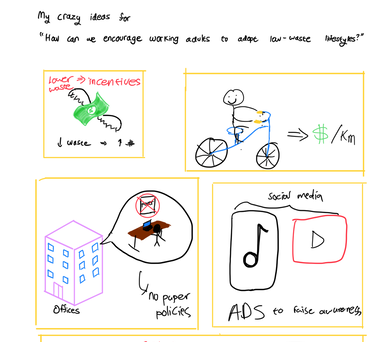 My crazy ideas for
"How can we encourage working adults to adopt low-waste lifestyles?"
lower waste ⇒ incentives
↓ waste ⇒ ↑ $
⇒ $/Km
Offices
paper
no paper
policies
social media
ADS to raise awareness